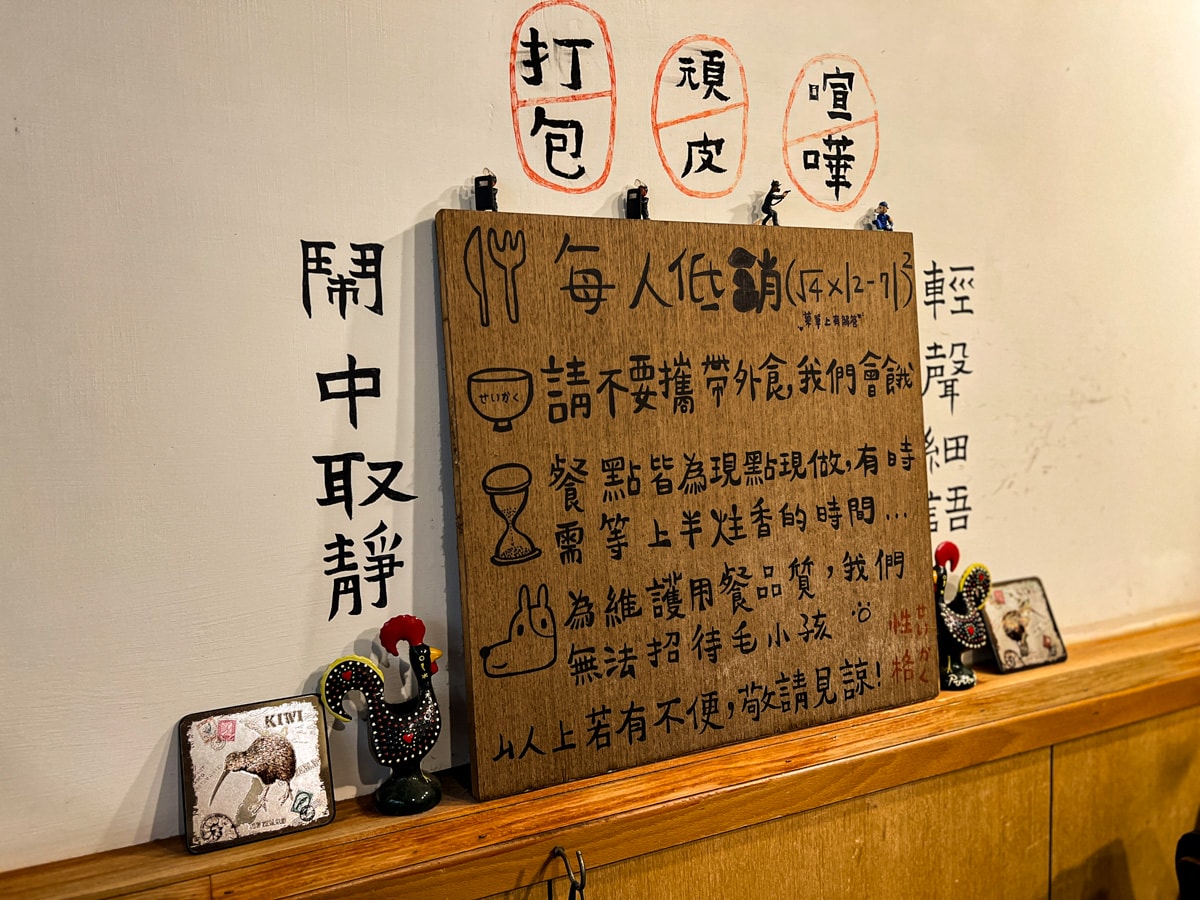 打包
頑皮
喧嘩
鬧中取靜
每人低銷(√4×|2-7|)²
"菜單上有解答"
せいかく
請不要攜帶外食,我們會餓
餐點皆為現點現做,有時
需等上半炷香的時間...
為維護用餐品質,我們
無法招待毛小孩
以上若有不便,敬請見諒!
せいかく
性格
輕聲細語
KIWI